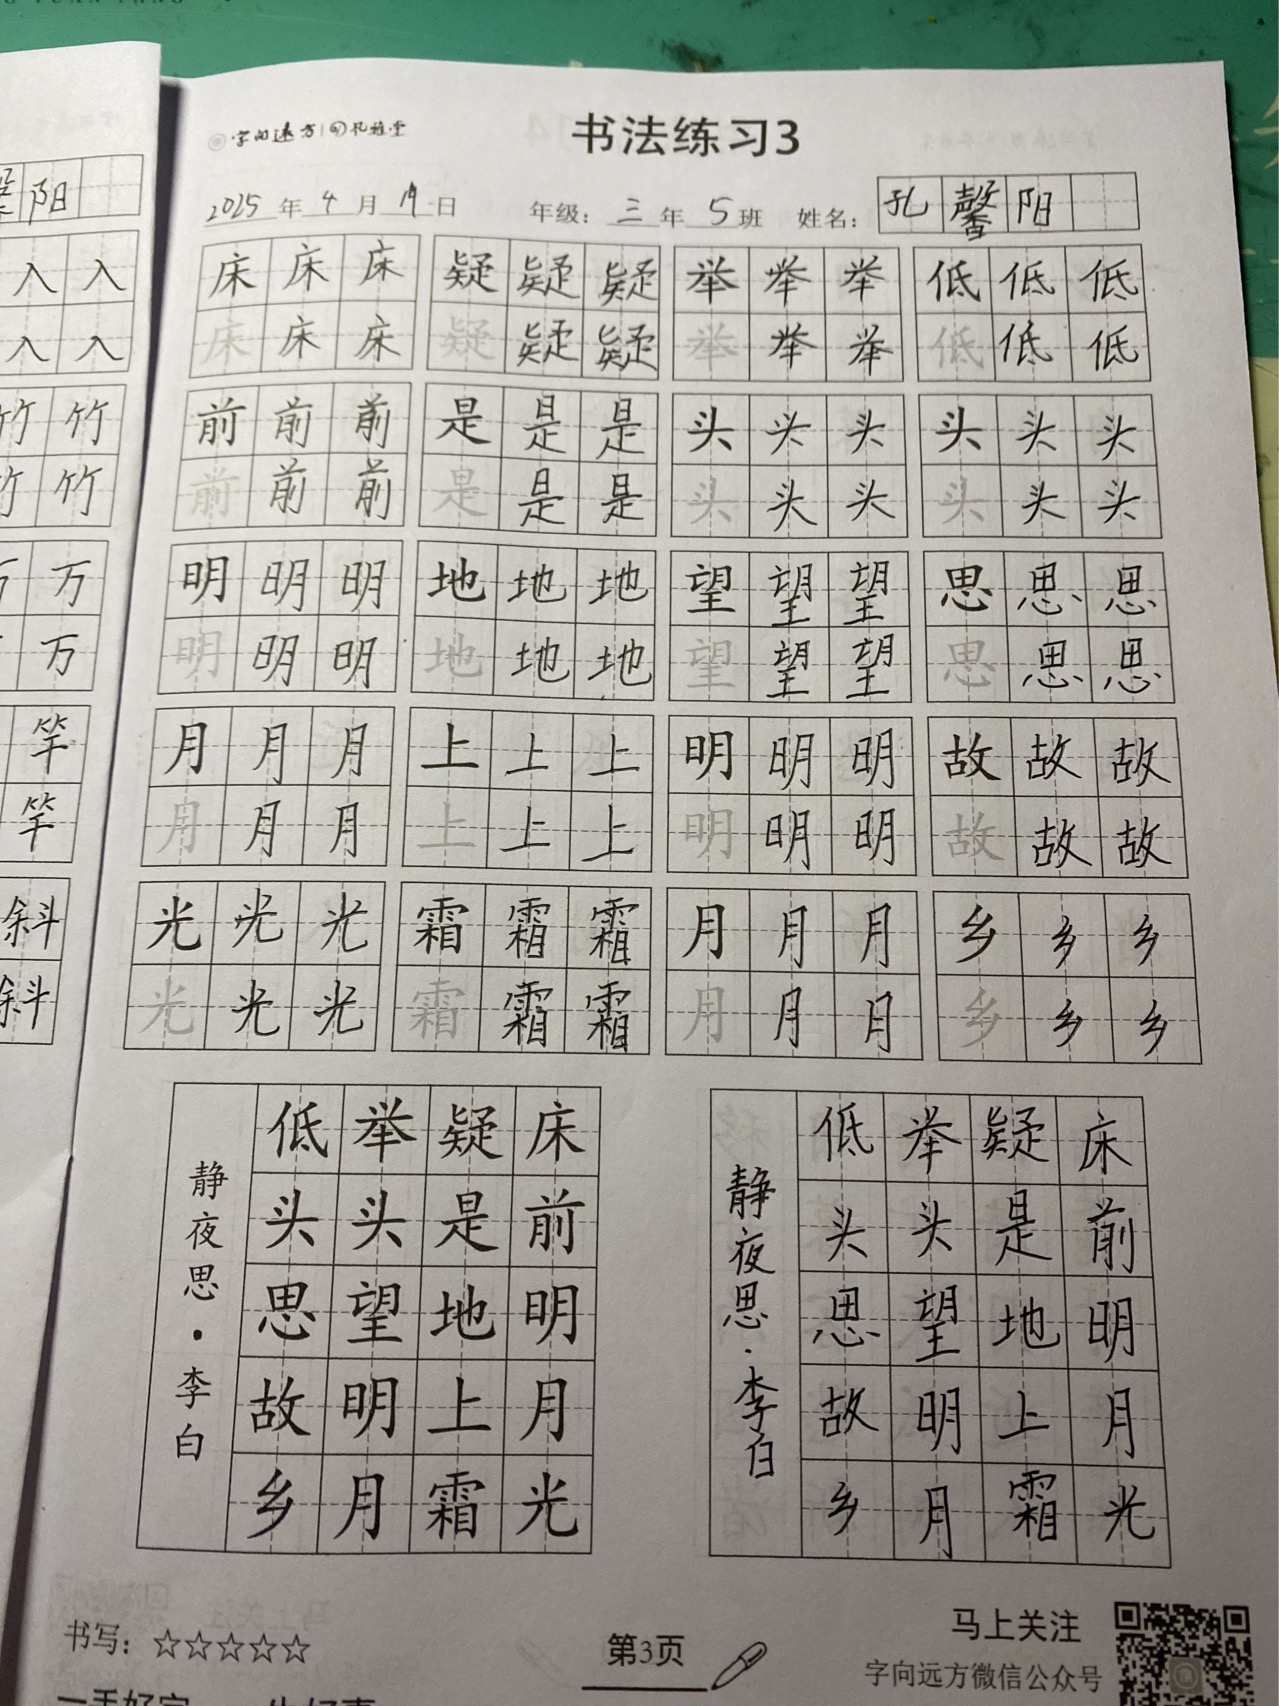 字向远方
书法练习3
2025年4月19日 年级：三年5班 姓名：孔馨阳
床床床 疑疑疑 举举举 低低低
床床床 疑疑疑 举举举 低低低
前前前 是是是 头头头 头头头
前前前 是是是 头头头 头头头
明明明 地地地 望望望 思思思
明明明 地地地 望望望 思思思
月月月 上上上 明明明 故故故
月月月 上上上 明明明 故故故
光光光 霜霜霜 月月月 乡乡乡
光光光 霜霜霜 月月月 乡乡乡
床前明月光
疑是地上霜
举头望明月
低头思故乡
静夜思·李白
床前明月光
疑是地上霜
举头望明月
低头思故乡
静夜思·李白
书写：☆☆☆☆☆
第3页
马上关注
字向远方微信公众号
阳
入入
入入
竹竹
竹竹
万万
万
竿
竿
斜
斜